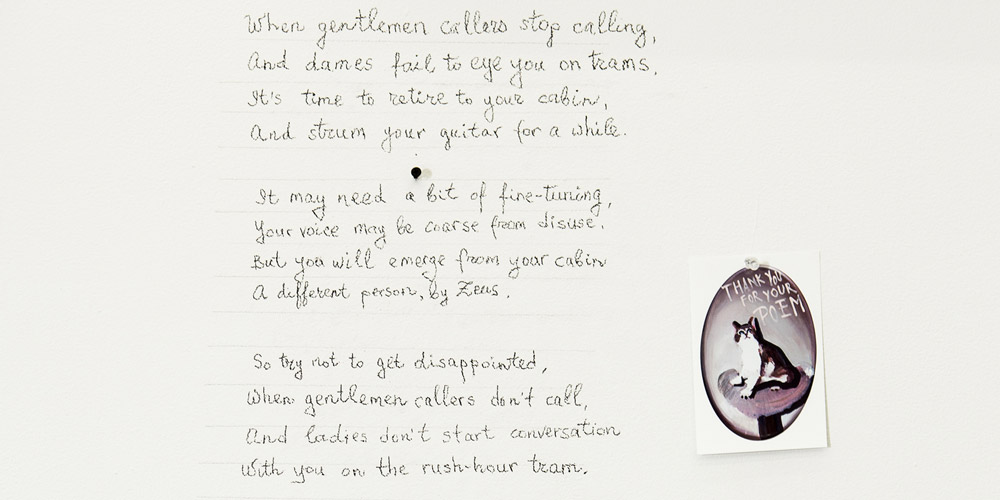 When gentlemen callers stop calling,
And dames fail to eye you on trams,
It's time to retire to your cabin,
And strum your guitar for a while.
It may need a bit of fine-tuning,
Your voice may be coarse from disuse.
But you will emerge from your cabin
A different person, by Zeus.
So try not to get disappointed,
When gentlemen callers don't call,
And ladies don't start conversation
With you on the rush-hour tram.
THANK YOU
FOR YOUR
POEM